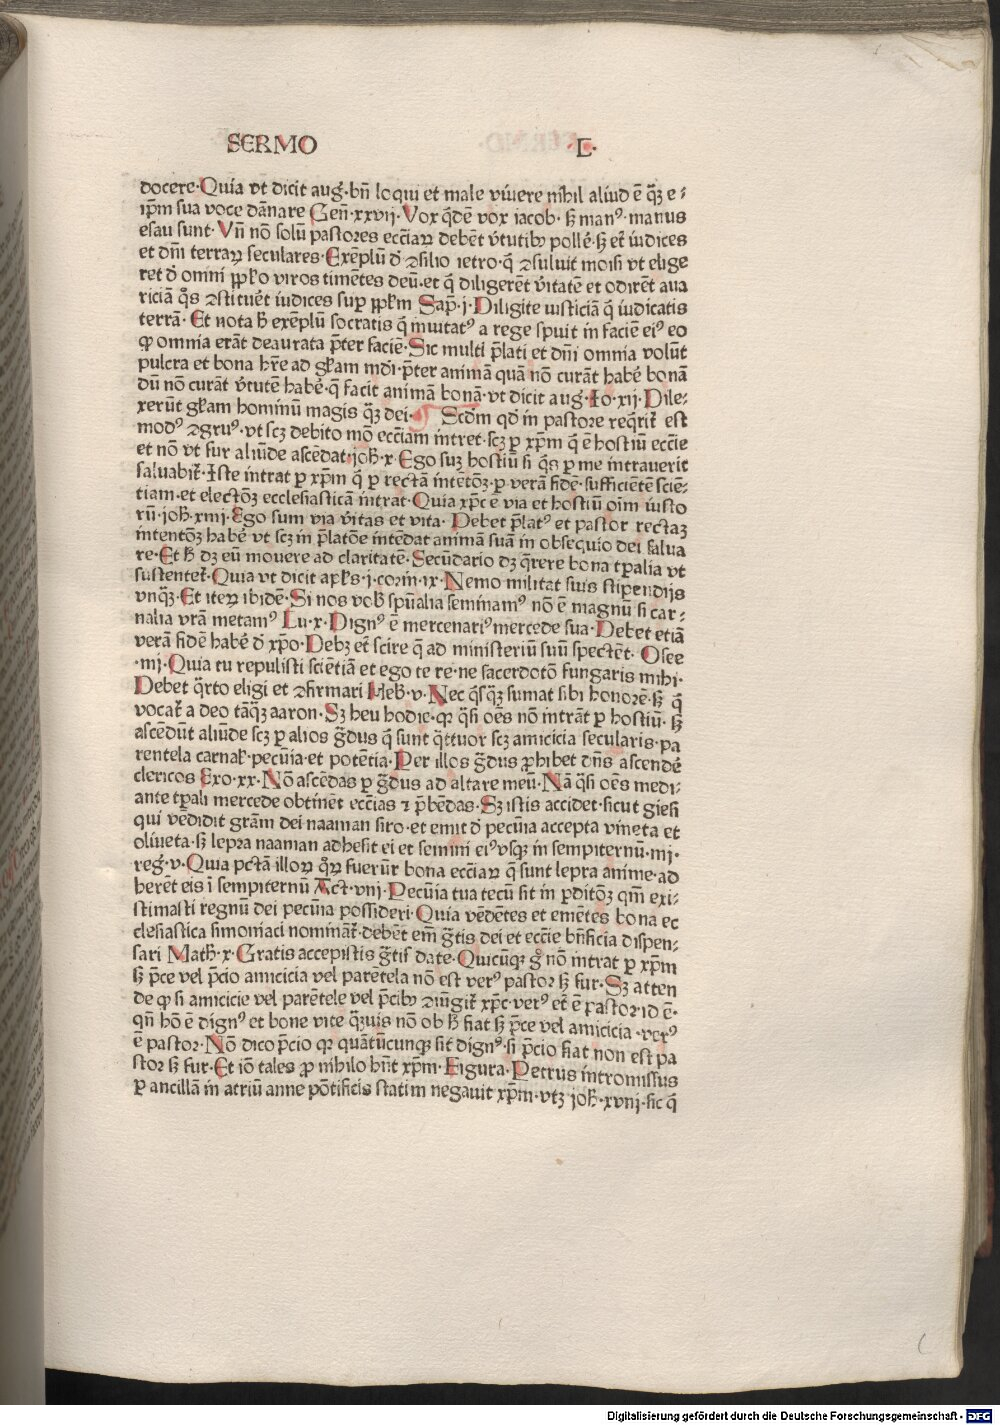 SERMO L·
docere·Quia vt dicit aug᷒·bn̄ loqui et male viuere nihil aliud ē q̄ꝫ e⸗
ip̄m sua voce dānare Gen̄·xxvij·Vox q̄dē vox iacob·sꝫ manꝰ·manus
esau sunt·Vn̄ nō solū pastores ecc̄iaꝝ debēt v̄tutibꝰ pollē·sꝫ et̄ iudices
et dn̄i terraꝝ seculares·Exēplū d̄ ꝯsilio ietro·q̄ ꝯsuluit moisi vt elige
ret d̄ omni pp̄lo viros timētes deū·et q̄ diligerēt v̄itatē et odirēt aua
riciā q̄s ꝯstituēt iudices sup̄ pp̄lm Sap̄·j·Diligite iusticiā q̄ iudicatis
terrā·Et nota h̄ exēplū socratis q̄ inuitatꝰ a rege spuit in faciē eiꝰ eo
ꝙ omnia erāt deaurata p̄ter faciē·Sic multi p̄lati et dn̄i omnia volūt
pulcra et bona hr̄e ad gl̄am mdi·p̄ter animā quā nō curāt habē bonā
dū nō curāt v̄tutē habē·q̄ facit animā bonā·vt dicit aug᷒·Io·xij·Dile⸗
xerūt gl̄am hominū magis q̄ꝫ dei· ¶ Scdm qd̄ in pastore req̄rit̄ est
modꝰ ꝯgruꝰ·vt scꝫ debito mō ecc̄iam intret·scꝫ ꝑ xp̄m q̄ ē hostiū ecc̄ie
et nō vt fur aliūde ascēdat·joh̄·x·Ego suꝫ hostiū si q̄s ꝑ me intrauerit
saluabit̄·Iste intrat ꝑ xp̄m q̄ ꝑ rectā intētōꝫ·ꝑ verā fidē·sufficiētē sciē⸗
tiam·et electōꝫ ecclesiasticā intrat·Quia xp̄c ē via et hostiū oīm iusto
rū·joh̄·xiiij·Ego sum via v̄itas et vita·Debet p̄latꝰ et pastor rectaꝫ
intentōꝫ habē vt scꝫ in p̄latōe intēdat animā suā in obsequio dei salua
re·Et h̄ dꝫ eū mouere ad claritatē·Secūdario dꝫ q̄rere bona tp̄alia vt
sustentet̄·Quia vt dicit ap̄ls·j·corin̄·ix·Nemo militat suis stipendijs
vnq̄ꝫ·Et iteꝝ ibidē·Si nos vob̄ spūalia seminamꝰ nō ē magnū si car⸗
nalia vr̄a metamꝰ Lu·x·Dignꝰ ē mercenariꝰ mercede sua·Debet etiā
verā fidē habē d̄ xp̄o·Debꝫ et̄ scire q̄ ad ministeriū suū spectēt·Osee
·iiij·Quia tu repulisti sciētiā et ego te re·ne sacerdotō fungaris mihi·
Debet q̄rto eligi et ꝯfirmari Heb̄·v·Nec q̄sq̄ꝫ sumat sibi honorē·sꝫ q̄
vocat̄ a deo tāq̄ꝫ aaron·Sꝫ heu hodie·qꝛ q̄si oēs nō intrāt ꝑ hostiū·sꝫ
ascēdūt aliūde scꝫ ꝑ alios ḡdus q̄ sunt q̄ttuor scꝫ amicicia secularis·pa
rentela carnal̄·pecūia·et potētia·Per illos ḡdus ꝓhibet dn̄s ascendē
clericos Exo·xx·Nō ascēdas ꝑ ḡdus ad altare meū·Nā q̄si oēs medi⸗
ante tp̄ali mercede obtinēt ecc̄ias ⁊ p̄bēdas·Sꝫ istis accidet·sicut giesi
qui vēdidit grām dei naaman siro·et emit d̄ pecūia accepta vineta et
oliueta·sꝫ lepra naaman adhesit ei et semini eiꝰ vsqꝫ in sempiternū·iiij·
reg᷒·v·Quia pctā illoꝝ q̄ꝝ fuerūt bona ecc̄iaꝝ q̄ sunt lepra anime·ad
herēt eis ī sempiternū Act̄·viij·Pecūia tua tecū sit in ꝑditōꝫ qm̄ exi⸗
stimasti regnū dei pecūia possideri·Quia vēdētes et emētes bona ec
clesiastica simoniaci nominat̄·debēt em̄ ḡtis dei et ecc̄ie bn̄ficia dispen⸗
sari Math̄·x·Gratis accepistis ḡtis date·Quicūqꝫ g̊ nō intrat ꝑ xp̄m
sꝫ p̄ce vel p̄cio amicicia vel parētela nō est verꝰ pastor sꝫ fur·Sꝫ atten
de ꝙ si amicicie vel parētele vel p̄cibꝰ ꝯiūgit̄ xp̄c·verꝰ et̄ ē pastor·id ē·
qn̄ hō ē dignꝰ et bone vite q̄ꝫuis nō ob h̄ fiat sꝫ p̄ce vel amicicia·verꝰ
ē pastor·Nō dico p̄cio qꝛ quātūcunqꝫ sit dignꝰ·si p̄cio fiat non est pa
stor sꝫ fur·Et iō tales ꝓ nihilo hn̄t xp̄m·Figura·Petrus intromissus
ꝑ ancillā in atriū anne pōtificis statim negauit xp̄m·vtꝫ joh̄·xviij·sic q̄
Digitalisierung gefördert durch die Deutsche Forschungsgemeinschaft - DFG